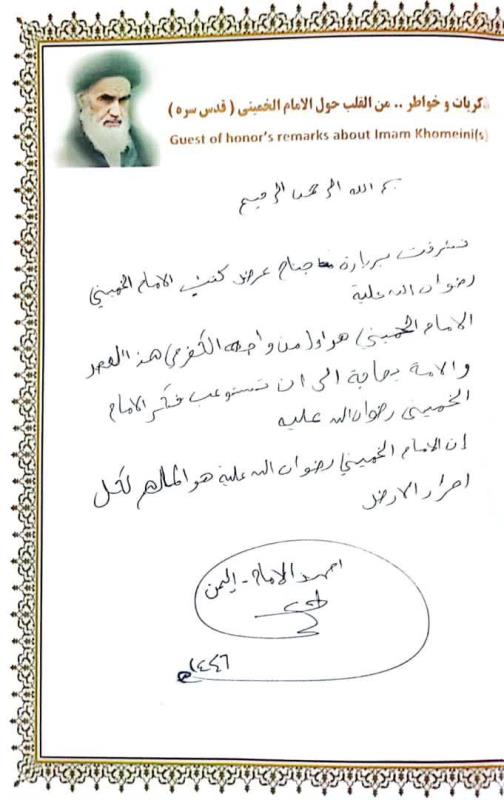 ذكريات و خواطر .. من القلب حول الامام الخميني ( قدس سره )
Guest of honor's remarks about Imam Khomeini(s)
بسم الله الرحمن الرحيم
تشرفت بزيارة جناح عرض كتب الامام الخميني
رضوان الله عليه
الامام الخميني هو اول من واجه الكفر في هذا العصر
والامة بحاجة الى ان تستوعب فكر الامام
الخميني رضوان الله عليه
إن الامام الخميني رضوان الله عليه هو الملهم لكل
احرار الارض
احمد الامام - اليمن
١٤٤٦هـ